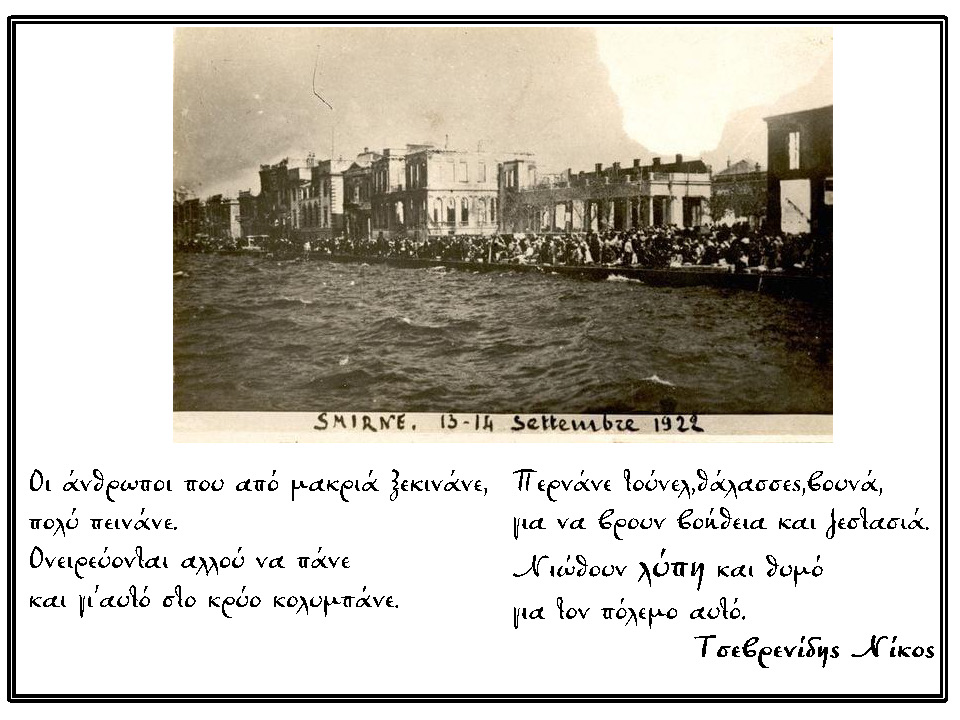 SMIRNE. 13-14 Settembre 1922
Οι άνθρωποι που από μακριά ξεκινάνε,
πολύ πεινάνε.
Ονειρεύονται αλλού να πάνε
και γι'αυτό στο κρύο κολυμπάνε.
Περνάνε τούνελ,θάλασσες,βουνά,
για να βρουν βοήθεια και ζεστασιά.
Νιώθουν λύπη και θυμό
για τον πόλεμο αυτό.
Τσεβρενίδης Νίκος